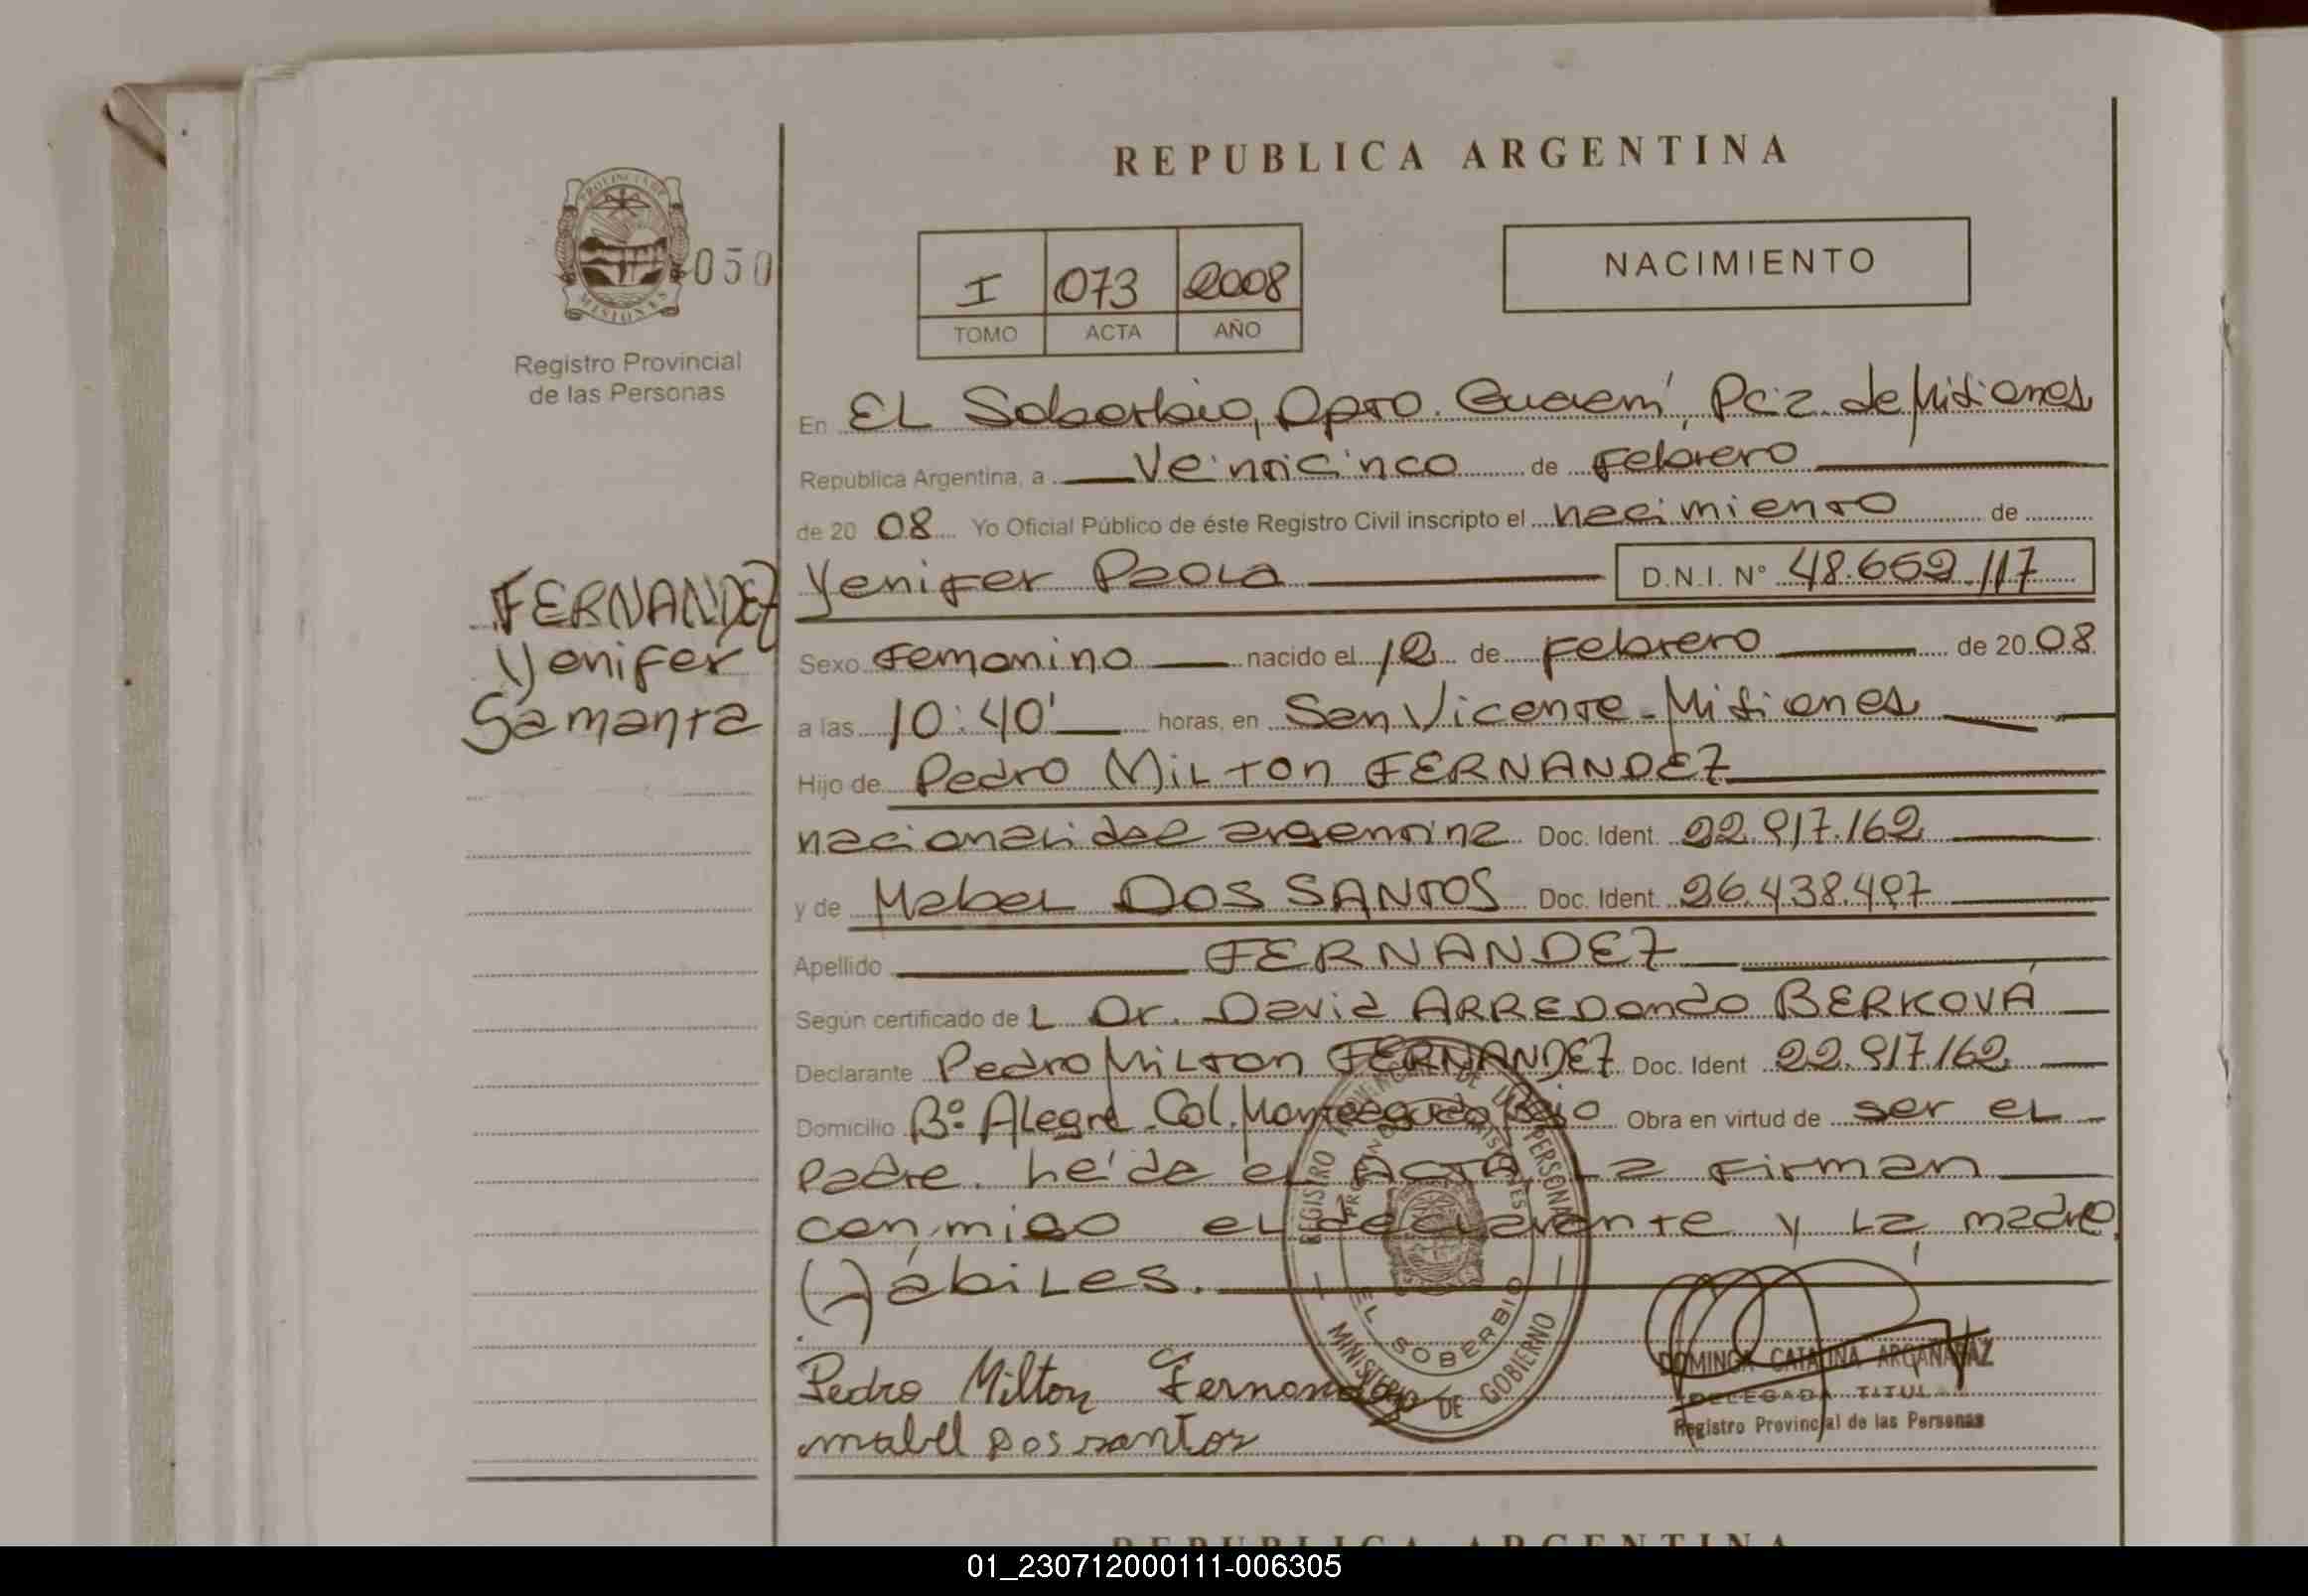 REPUBLICA ARGENTINA
PROVINCIA DE
MISIONES
050
Registro Provincial
de las Personas
I 073 2008
TOMO ACTA AÑO
NACIMIENTO
En EL Soberbio, Dpto. Guaraní, Pcia. de Misiones
Republica Argentina, a Veinticinco de Febrero
de 20 08 Yo Oficial Público de éste Registro Civil inscripto el nacimiento de
Yenifer Paola D.N.I. Nº 48.652.117
FERNANDEZ
Yenifer
Samanta
Sexo Femenino nacido el 12 de Febrero de 20 08
a las 10:40' horas, en San Vicente - Misiones
Hijo de Pedro Milton FERNANDEZ
nacionalidad argentina Doc. Ident. 22.917.162
y de Mabel DOS SANTOS Doc. Ident. 26.438.497
Apellido FERNANDEZ
Según certificado de L Dr. David ARREDondo BERKOVA
Declarante Pedro Milton FERNANDEZ Doc. Ident 22.917.162
Domicilio Bº Alegre - Col. Monteagudo Bajo Obra en virtud de ser el
Padre. Leída el ACTA, La Firman
conmigo el declarante y La madre
(-) ábiles.
REGISTRO PROVINCIAL DE LAS PERSONAS
EL SOBERBIO
MINISTERIO DE GOBIERNO
Pedro Milton Fernandez
mabel Dos santos
DOMINGA CATALINA ARGAÑARAZ
DELEGADA TITULAR
Registro Provincial de las Personas
REPUBLICA ARGENTINA
01_230712000111-006305